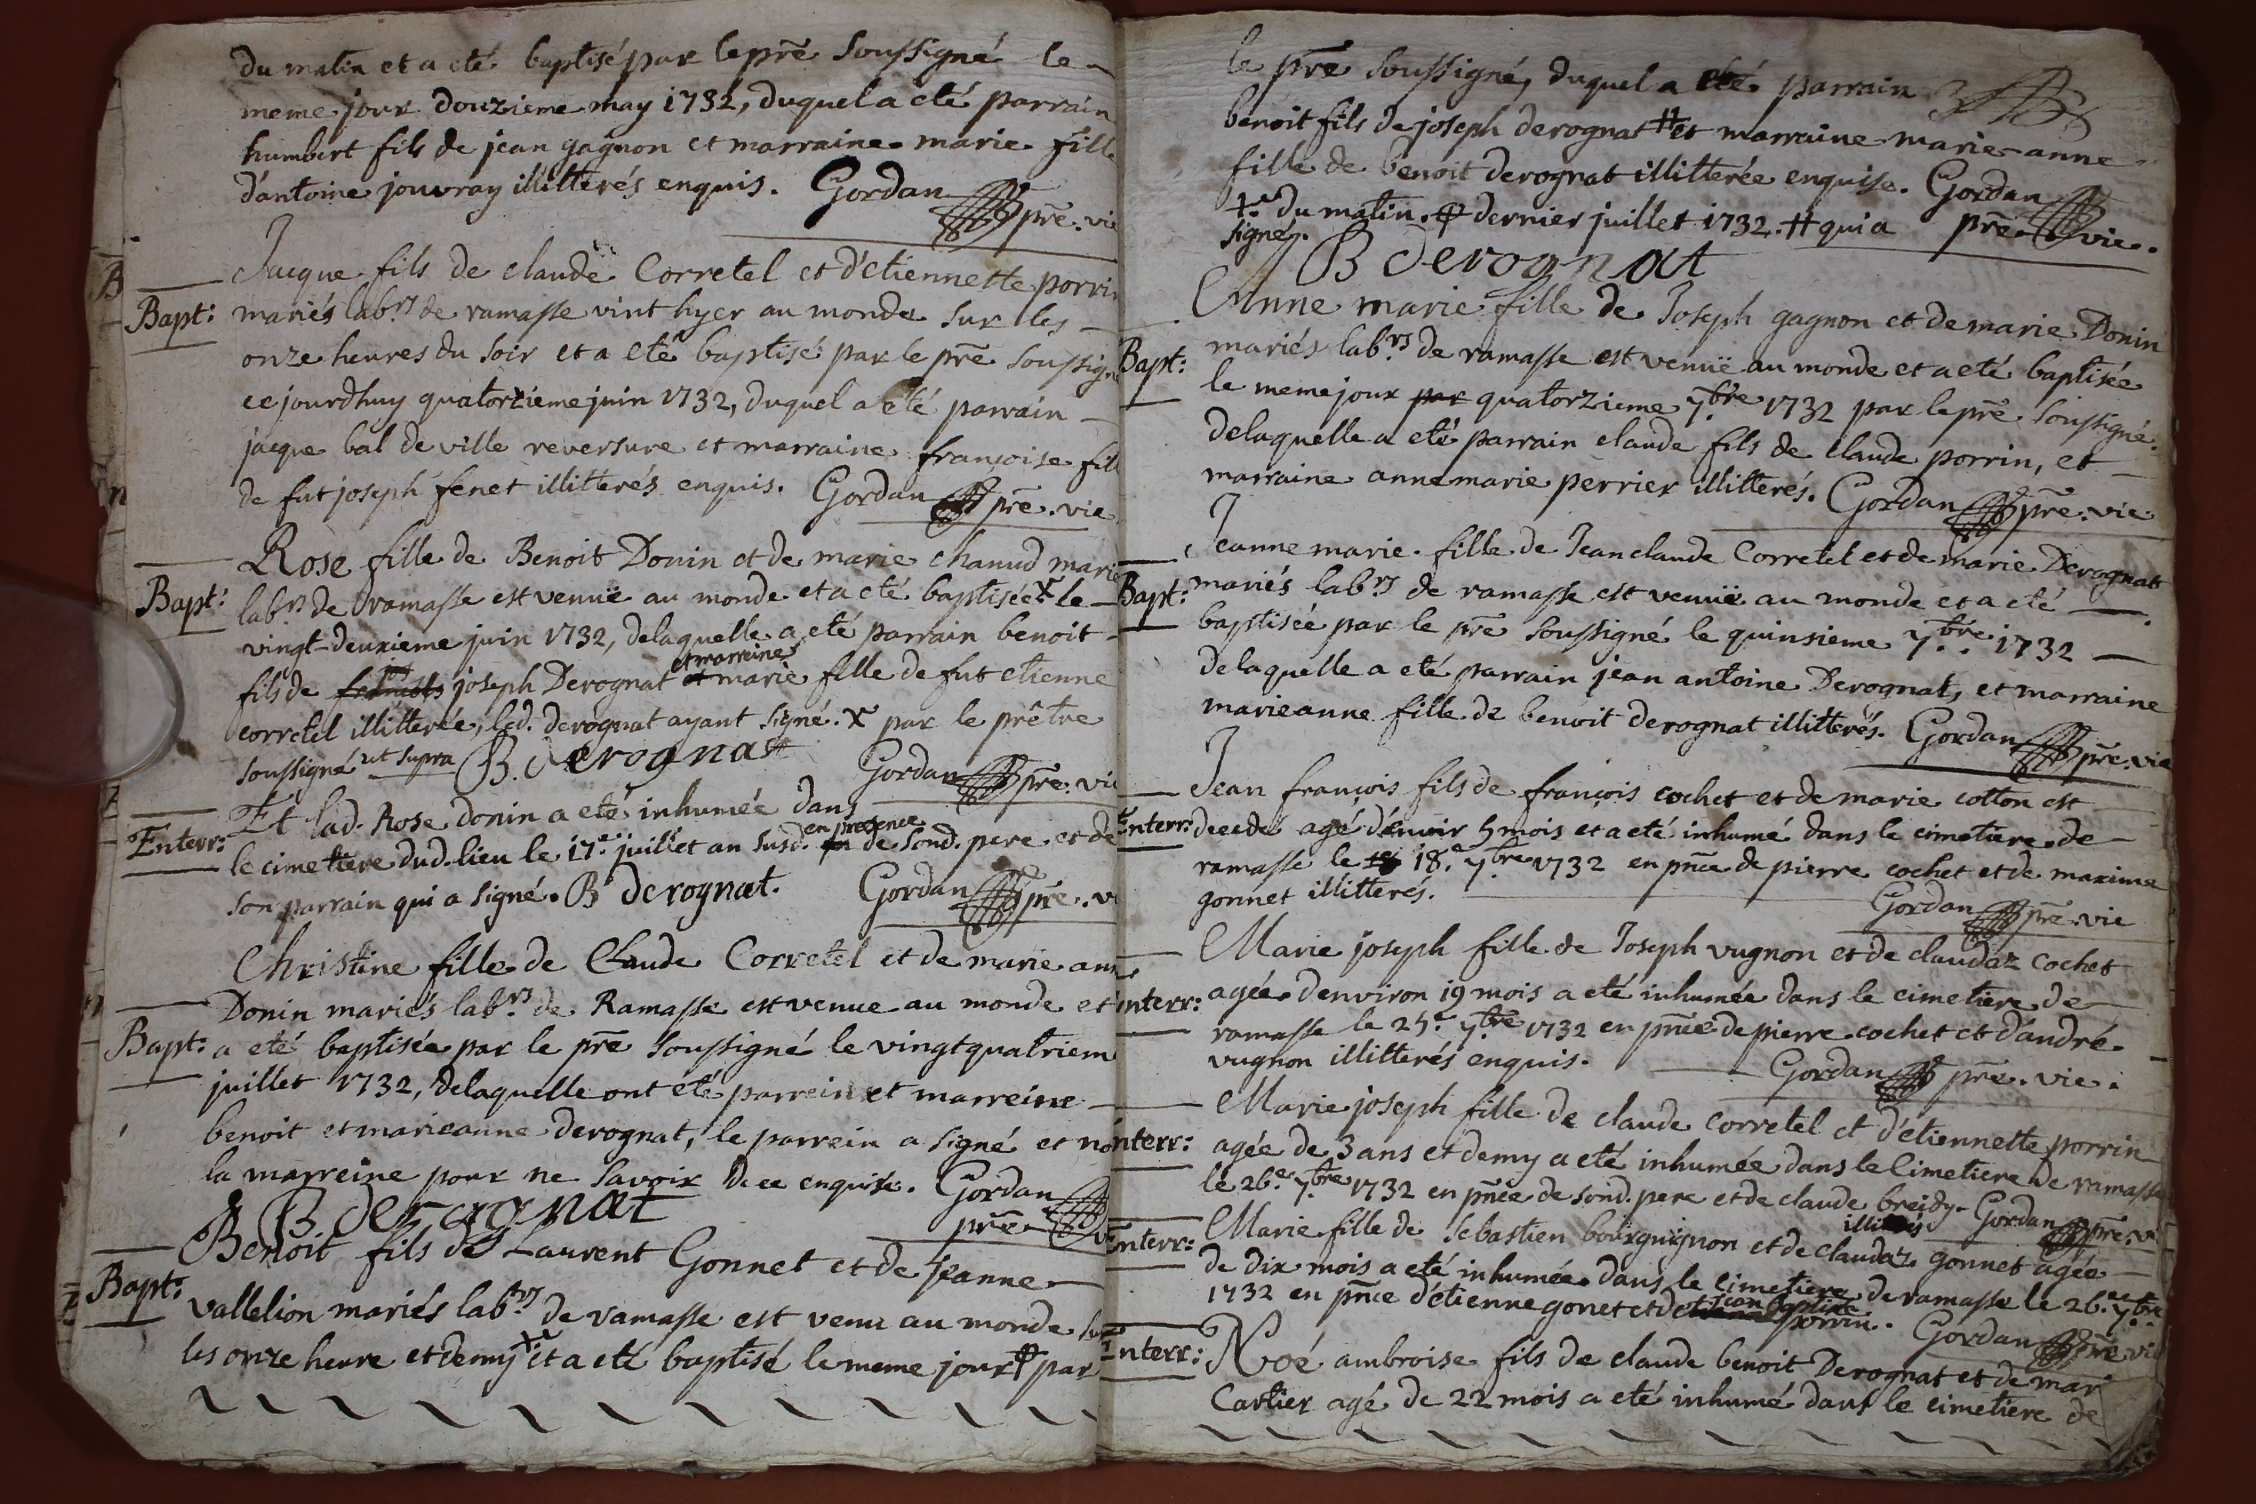 du matin et a eté baptisé par le prē soussigné le
meme jour douzieme may 1732, duquel a eté parrain
humbert fils de jean gagnon et marraine marie fille
d'antoine jouvray illitterés enquis. Gordan prē. vic
Jacque fils de claude Corretel et d'etiennette porrin
Bapt: mariés lab.rs de ramasse vint hyer au monde sur les
onze heures du soir et a eté baptisé par le prē soussigné
cejourdhuy quatorzieme juin 1732, duquel a eté parrain
jacque bal de ville reversure et marraine françoise fille
de fut joseph fenet illitterés enquis. Gordan prē. vic
Rose fille de Benoit Donin et de marie chanud marié
Bapt: lab.rs de ramasse est venuë au monde et a eté baptisée x le
vingt-deuxieme juin 1732, delaquelle a eté parrain benoit
et marraine
fils de joseph Derognat marie fille de fut etienne
corretel illitterée, led. derognat ayant signé. x par le prêtre
soussigné ut supra B. derognat Gordan prē. vic
Et lad. Rose donin a eté inhumée dans
en presence
Enterr: le cimetiere dud. lieu le 17.e juillet an susd. de sond. pere et de
son parrain qui a signé. B derognat. Gordan prē. vi
Christine fille de Claude Corretel et de marie anne
Donin mariés lab.rs de Ramasse est venue au monde et
Bapt: a eté baptisée par le prē soussigné le vingtquatriem
juillet 1732, delaquelle ont eté parrein et marreine
benoit et marieanne derognat, le parrein a signé et non
la marreine pour ne savoir de ce enquise. Gordan
B derognat prē. v
Benoit fils de Laurent Gonnet et de jeanne
Bapt: vallelion mariés lab.rs de ramasse est venu au monde sur
les onze heure et demy et a eté baptisé le meme jour par
le prē soussigné, duquel a eté parrain
benoit fils de joseph derognat # et marraine marie-anne
fille de benoit derognat illitterée enquise. Gordan
du matin. dernier juillet 1732. # qui a prē. vic.
signé.
B derognat
Anne marie fille de Joseph gagnon et de marie Donin
Bapt: mariés lab.rs de ramasse est venuë au monde et a eté baptisée
le meme jour par quatorzieme 7.bre 1732 par le prē soussigné
delaquelle a eté parrain claude fils de claude porrin, et
marraine anne marie perrier illitterés. Gordan prē. vic
Jeanne marie fille de Jean claude Corretel et de marie Derognat
Bapt: mariés lab.rs de ramasse est venuë au monde et a eté
baptisée par le prē soussigné le quinsieme 7.bre 1732
delaquelle a eté parrain jean antoine Derognat, et marraine
marieanne fille de benoit derognat illitterés. Gordan prē. vic
Jean françois fils de françois cochet et de marie cotton est
Enterr: decedé agé d'enuir 5 mois et a eté inhumé dans le cimetiere de
ramasse le 18.e 7.bre 1732 en pñce de pierre cochet et de maxime
gonnet illitterés.
Gordan prē. vic
Marie joseph fille de Joseph vugnon et de claudaz cochet
nterr: agée denviron 19 mois a eté inhumée dans le cimetiere de
ramasse le 25.e 7.bre 1732 en pñce de pierre cochet et d'andré
vugnon illitterés enquis. Gordan prē. vic.
Marie joseph fille de claude corretel et d'etiennette porrin
nterr: agée de 3 ans et demy a eté inhumée dans le Cimetiere de ramasse
le 26.e 7.bre 1732 en pñce de sond. pere et de claude breidy. Gordan prē. vi
Marie fille de sebastien bourguignon et de claudaz gonnet agée
Enterr: de dix mois a eté inhumée dans le cimetiere de ramasse le 26.e 7.bre
jean baptiste
1732 en pñce d'etienne gonet et de porrin. Gordan prē vic
Enterr: Noé ambroise fils de claude benoit Derognat et de mari
Cartier agé de 22 mois a eté inhumé dans le cimetiere de